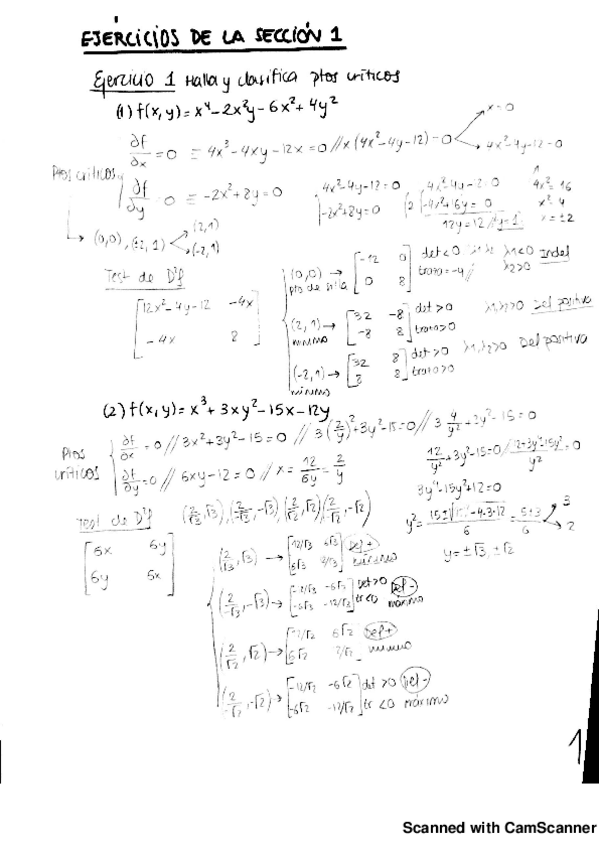 EJERCICIOS DE LA SECCIÓN 1
Ejercicio 1 Halla y clasifica ptos críticos
(1) f(x,y) = x⁴ - 2x²y - 6x² + 4y²
∂f/∂x = 0 ≡ 4x³ - 4xy - 12x = 0 // x(4x² - 4y - 12) = 0
x = 0
4x² - 4y - 12 = 0
Ptos críticos
∂f/∂y = 0 ≡ -2x² + 8y = 0
4x² - 4y - 12 = 0
-2x² + 8y = 0
-4x² + 16y = 0
12y = 12 // y = 1
4x² = 16
x² = 4
x = ±2
(0,0), (±2, 1)
(2,1)
(-2,1)
Test de D²f
[12x² - 4y - 12 -4x
-4x 8]
(0,0) → [-12 0
0 8] det < 0
traza = -4 //
Indef
pto de silla
(2,1) → [32 -8
-8 8] det > 0
traza > 0
λ1, λ2 > 0 Def positiva
mínimo
(-2,1) → [32 8
8 8] det > 0
traza > 0
λ1, λ2 > 0 Def positiva
mínimo
(2) f(x,y) = x³ + 3xy² - 15x - 12y
Ptos críticos
∂f/∂x = 0 // 3x² + 3y² - 15 = 0 // 3(2/y)² + 3y² - 15 = 0 // 3 4/y² + 3y² - 15 = 0
∂f/∂y = 0 // 6xy - 12 = 0 // x = 12/6y = 2/y
12/y² + 3y² - 15 = 0
3y⁴ - 15y² + 12 = 0
= 5±3/6
3
2
y = ±√3, ±√2
Test de D²f
[6x 6y
6y 6x]
(2/√3, √3), (2/-√3, -√3) (2/√2, √2) (2/-√2, -√2)
(2/√3, √3) → [12/√3 6√3
Def +
mínimo
(2/-√3, -√3) → [-12/√3 -6√3
-6√3 -12/√3] det > 0
tr < 0
Def -
máximo
(2/√2, √2) →
6√2
Def +
mínimo
(2/-√2, -√2) → [-12/√2 -6√2
-6√2 -12/√2] det > 0
tr < 0
Def -
máximo
1
Scanned with CamScanner